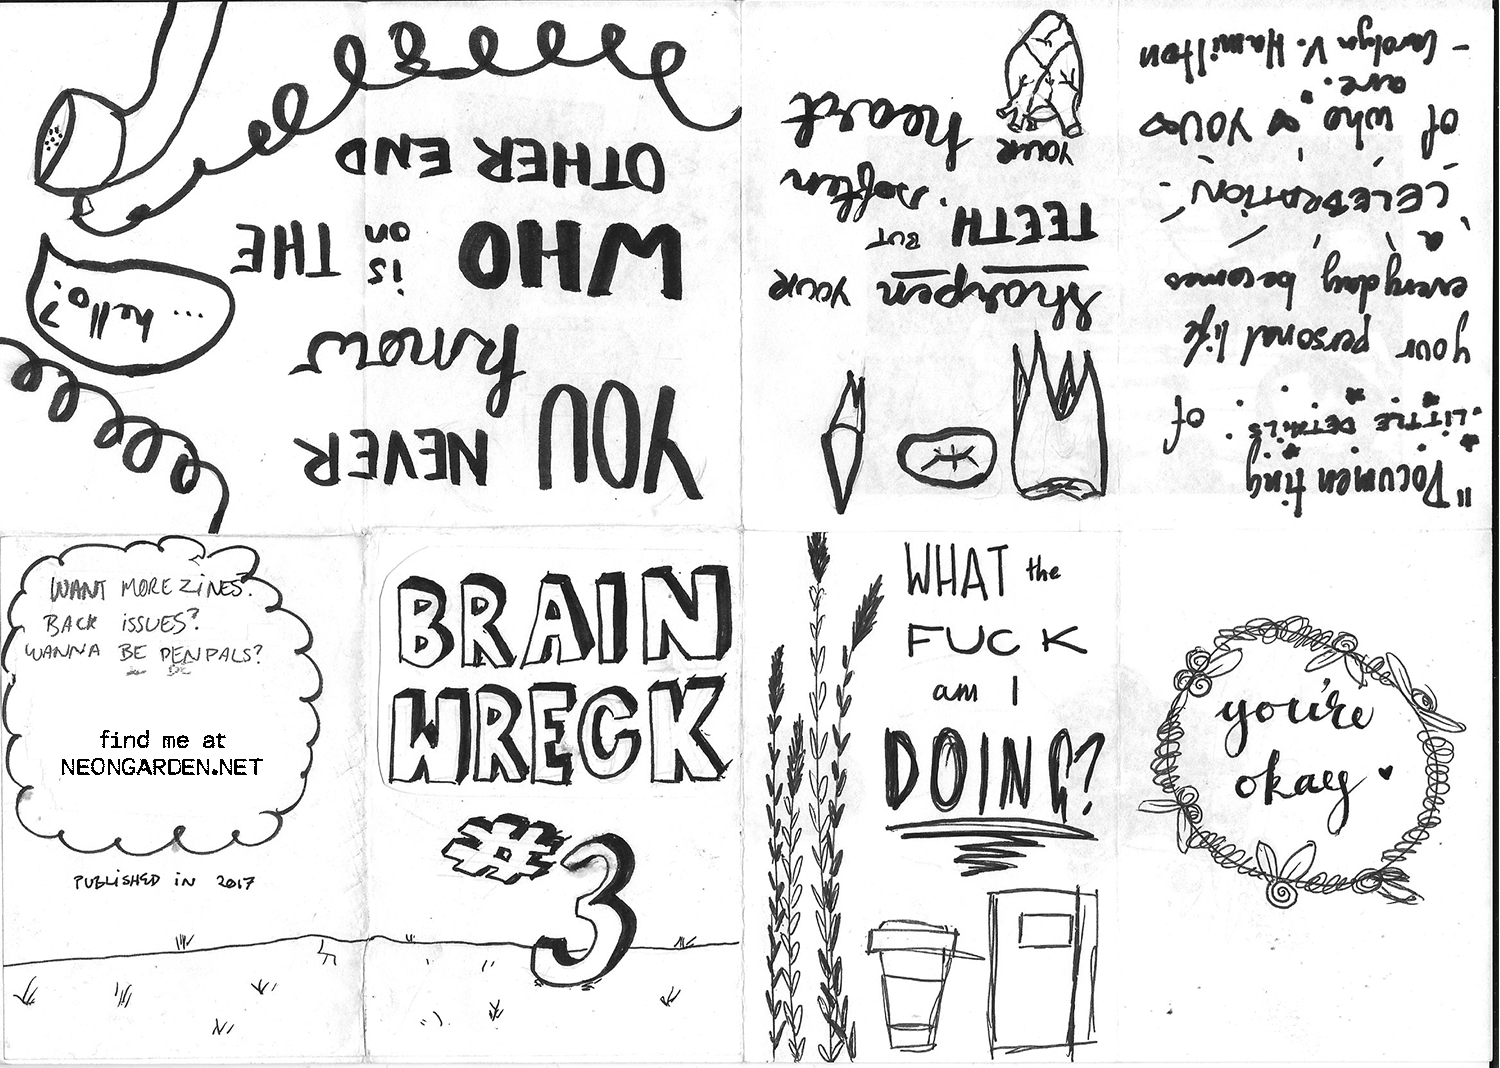 BRAIN
WRECK
#3
WHAT the
FUCK
am I
DOING?
you're
okay
"Documenting
LITTLE DETAILS of
your personal life
everyday becomes
a
CELEBRATION
of who YOU
are."
- Carolyn V. Hamilton
sharpen YOUR
TEETH BUT
soften
YOUR
heart
YOU NEVER
know
WHO is on THE
OTHER END
... hello?
WANT MORE ZINES?
BACK ISSUES?
WANNA BE PENPALS?
find me at
NEONGARDEN.NET
PUBLISHED IN 2017